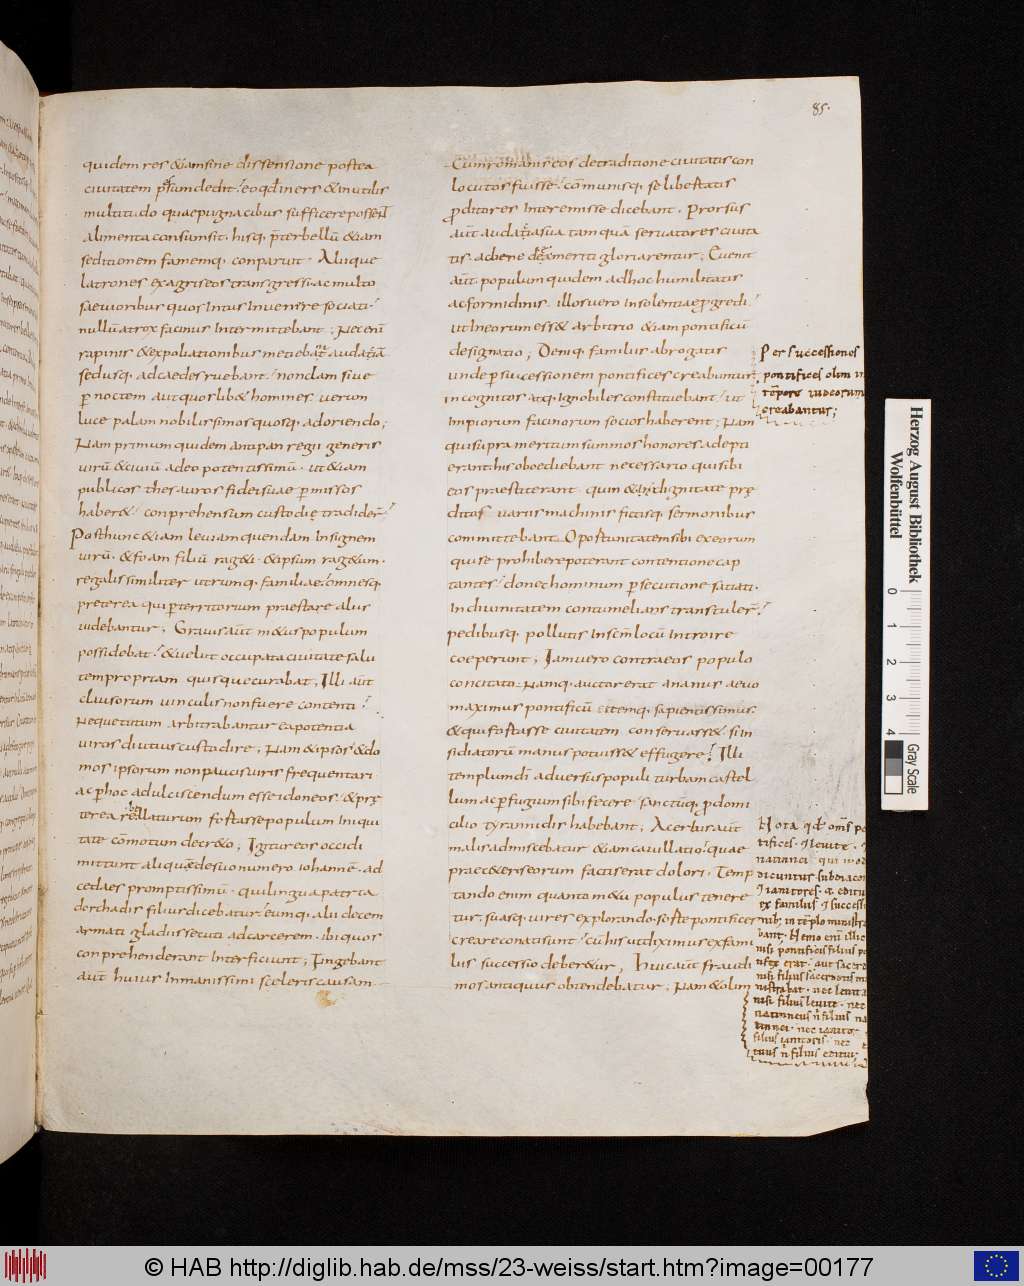 85.
quidem res &iam sine dissensione postea
ciuitatem psum dedit; eo qd iners & inutilis
multitudo quae pugnacibus sufficere possent
alimenta consumsit. hisq. pter bellū &iam
seditionem famemq. conparuit. Aliique
latrones ex agris eos transgressi ac multo
saeuioribus quos intus inuenire sociati.
nullū atrox facinus intermittebant; Nec enī
rapinis & expoliationibus
sedusq. ad caedes ruebant. non clam siue
p noctem aut quoslib& homines. uerum
luce palam nobilissimos quosq. adoriendo;
Nam primum quidem antipan regii generis
uirū & ciuiū adeo potentissimū. ut &iam
publicos thesauros fidei suae pmissos
haber&. conprehensum custodię tradider
Post hunc &iam leuiam quendam insignem
uirū. & sofam filiū rag&i. & ipsum rag&um.
regalis similiter utrumq. familiae. omnesq.
preterea qui pterritorum praestare aliis
uidebantur; Grauis aūt m&us populum
possidebat. & uelut occupata ciuitate salu
tem propriam quisque curabat; Illi aūt
clausorum uinculis non fuere contenti
Neque tutum arbitrabantur ea potentia
uiros diutius custodire; Nam & ipsos & do
mos ipsorum non paucis uiris frequentari
ac phoc ad ulciscendum esse idoneos. & prę
terea rebellaturum fortasse populum iniqui
tate cōmotum decr&o; Igitur eos occidi
mittunt aliquē de suo numero iohannē. ad
cedaes promptissimū. qui lingua patria
dorchadis filius dicebatur. eumq. alii decem
armati gladiis secuti ad carcerem. ibi quos
conprehenderant interficiunt; Ingebant
aūt huius inmanissimi sceleris causam
Cum romanis eos de traditione ciuitatis con
locutos fuisse. cōmunisq. se libertatis
pditores interemisse dicebant. Prorsus
aūt audatia sua tamquā seruatores ciuita
tis. ac bene de ea meriti gloriarentur; Euenit
aūt populum quidem ad hoc humilitatis
ac formidinis. illos uero insolentiae pgredi.
ut in eorum ess& arbitrio &iam pontificū
designatio; Deniq. familiis abrogatis
unde p successionem pontifices creabantur.
incognitos atq. ignobiles constituebant. ut
impiorum facinorum socios haberent; Nam
qui supra meritum summos honores adepti
erant his oboediebant necessario qui sibi
eos praestiterant. quin & in dignitate prę
ditos uariis machinis fictisq. sermonibus
committebant. Oportunitatem sibi ex eorum
qui se prohibere poterant contentione cap
tantes. donec hominum psecutione satiati.
in diuinitatem contumelias transtuler
pedibusq. pollutis in scm locū introire
coeperunt; Iam uero contra eos populo
concitato. Namq. auctor erat ananus aeuo
maximus pontificū itemq. sapientissimus.
& qui fortasse ciuitatem conseruass& si in
sidiatorū manus potuiss& effugere; Illi
templum di aduersus populi turbam castel
lum ac pfugium sibi fecere. sanctūq. p domi
cilio tyrannidis habebant; Acerbis aūt
malis admiscebatur &iam cauillatio. quae
praec&eris eorum factis erat dolori. Temp
tando enim quanto m&u populus tenere
tur. suasq. uires explorando. sorte pontifices
creare conati sunt. cū his ut diximus ex fami
liis successio deber&ur; Huic aūt fraudi
mos antiquus obtendebatur; Nam & olim
Per successiones
pontifices olim in
tēpore iudeorum
creabantur;
Nota qd oms po
tifices. & leuite.
natinnei qui mod
dicuntur subdiacon
& ianitores. & editu
ex familiis & successi
nib; in tēplo ministra
bant. Nemo eni illic
nisi pontificis filius po
tifex erat. aut sacerd
nisi filius sacerdotis mi
nistrabat. nec leuita
nisi filius leuite. nec
natinneus n filius na
tinnei. nec ianitor
filius ianitoris. nec
tuus n filius editui;
Herzog August Bibliothek
Wolfenbüttel
0 1 2 3 4
Gray Scale
© HAB http://diglib.hab.de/mss/23-weiss/start.htm?image=00177